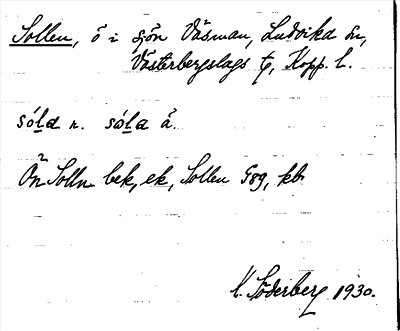 Sollen, ö i sjön Väsman, Ludvika sn,
Västerbergslags tg, Kopp. l.
sóļa n. sóļa å.
Ön Solln bek, ek, Sollen G89, kb
K. Söderberg 1930.